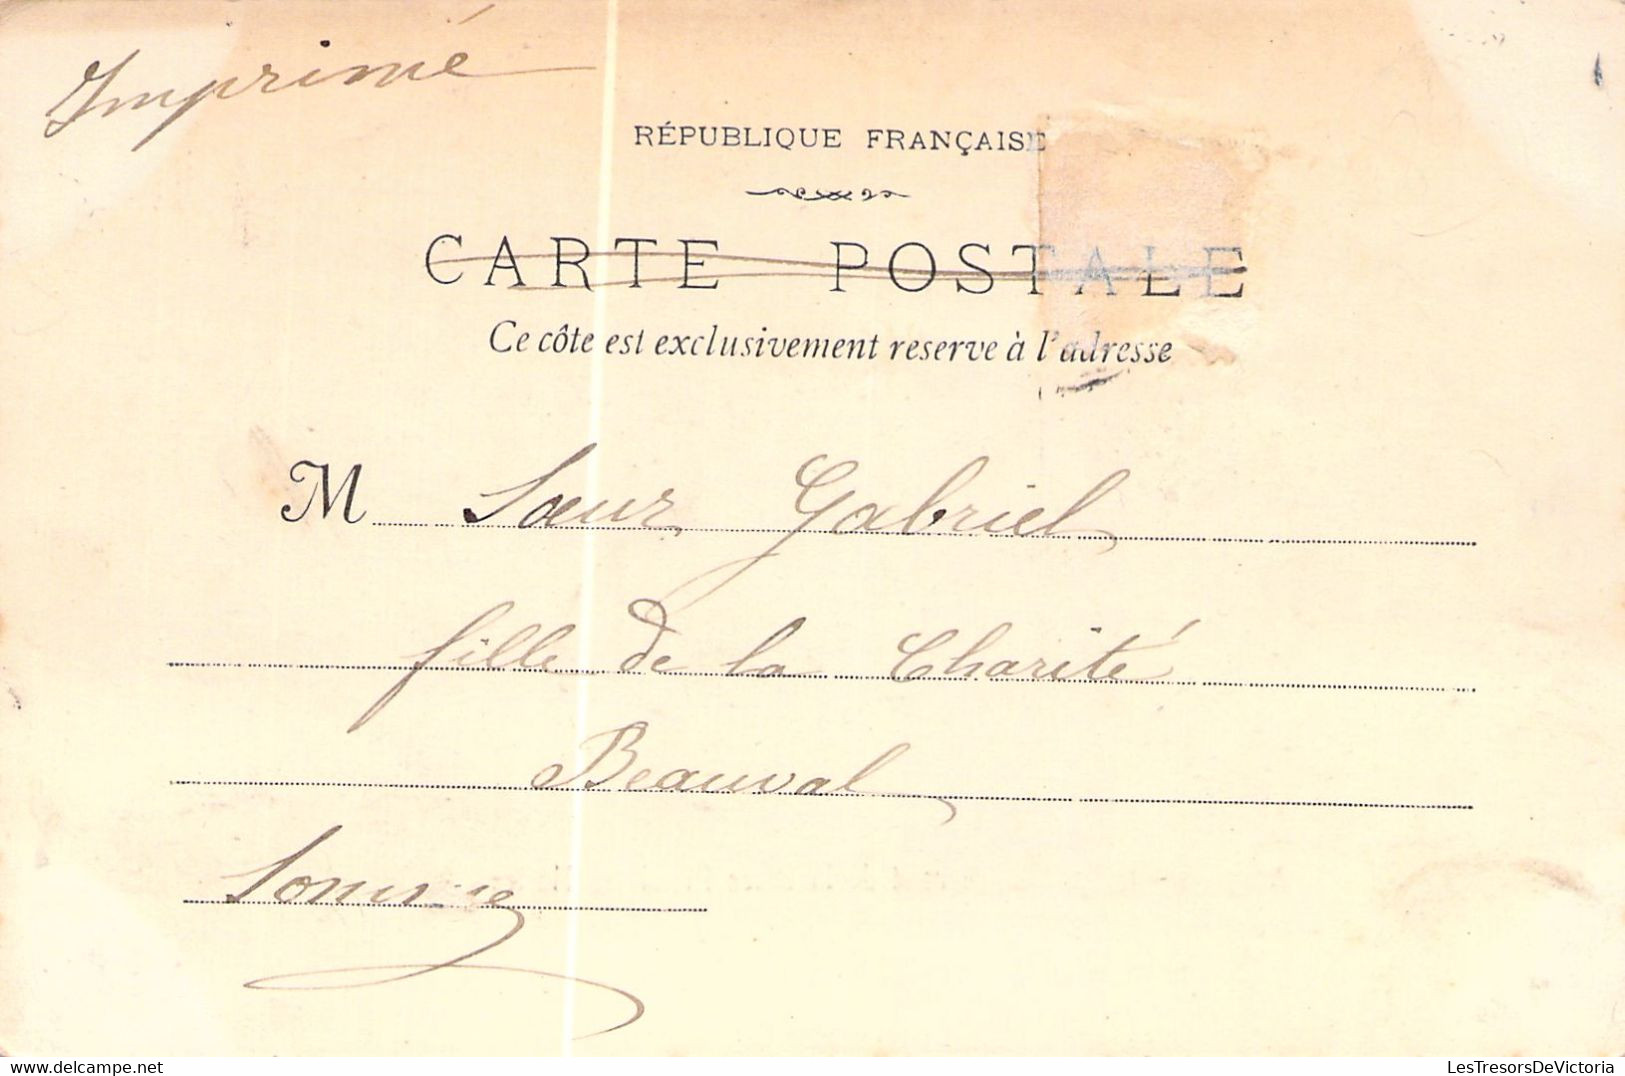 Imprimé
RÉPUBLIQUE FRANÇAISE
CARTE POSTALE
Ce côte est exclusivement reserve à l'adresse
M Sœur Gabriel
fille de la Charité
Beauval
Somme
LesTresorsDeVictoria